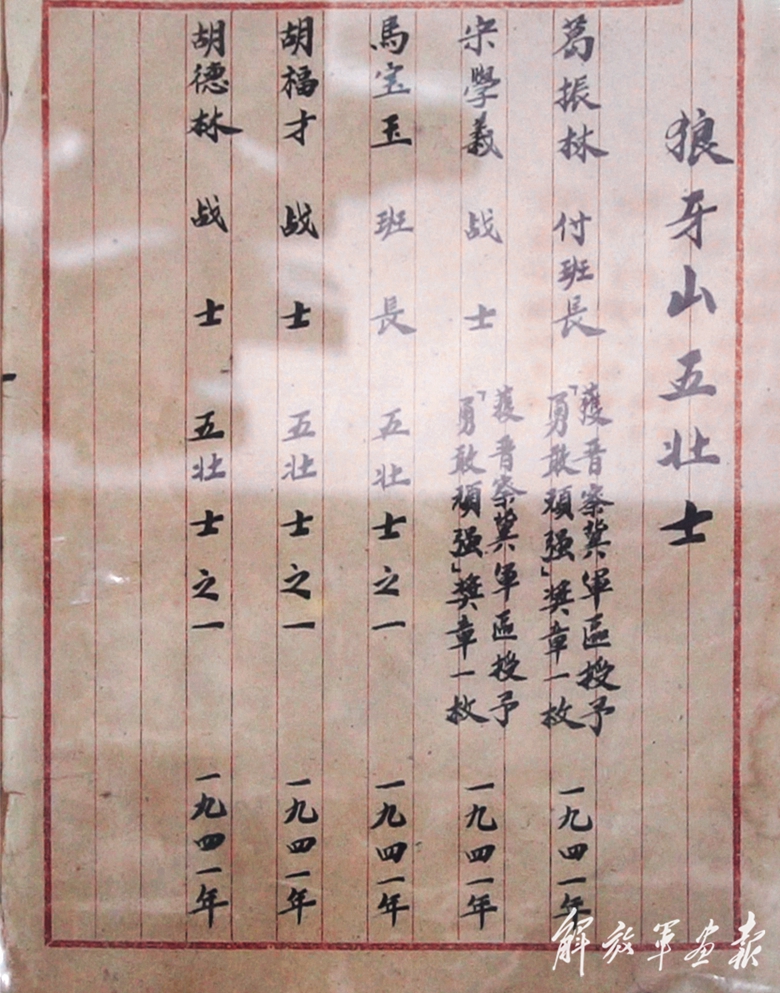 狼牙山五壮士
葛振林 付班長 獲晋察冀軍區授予「勇敢頑强」奖章一枚 一九四一年
宋學義 战士 獲晋察冀軍區授予「勇敢頑强」奖章一枚 一九四一年
馬宝玉 班長 五壮士之一 一九四一年
胡福才 战士 五壮士之一 一九四一年
胡德林 战士 五壮士之一 一九四一年
解放軍画报